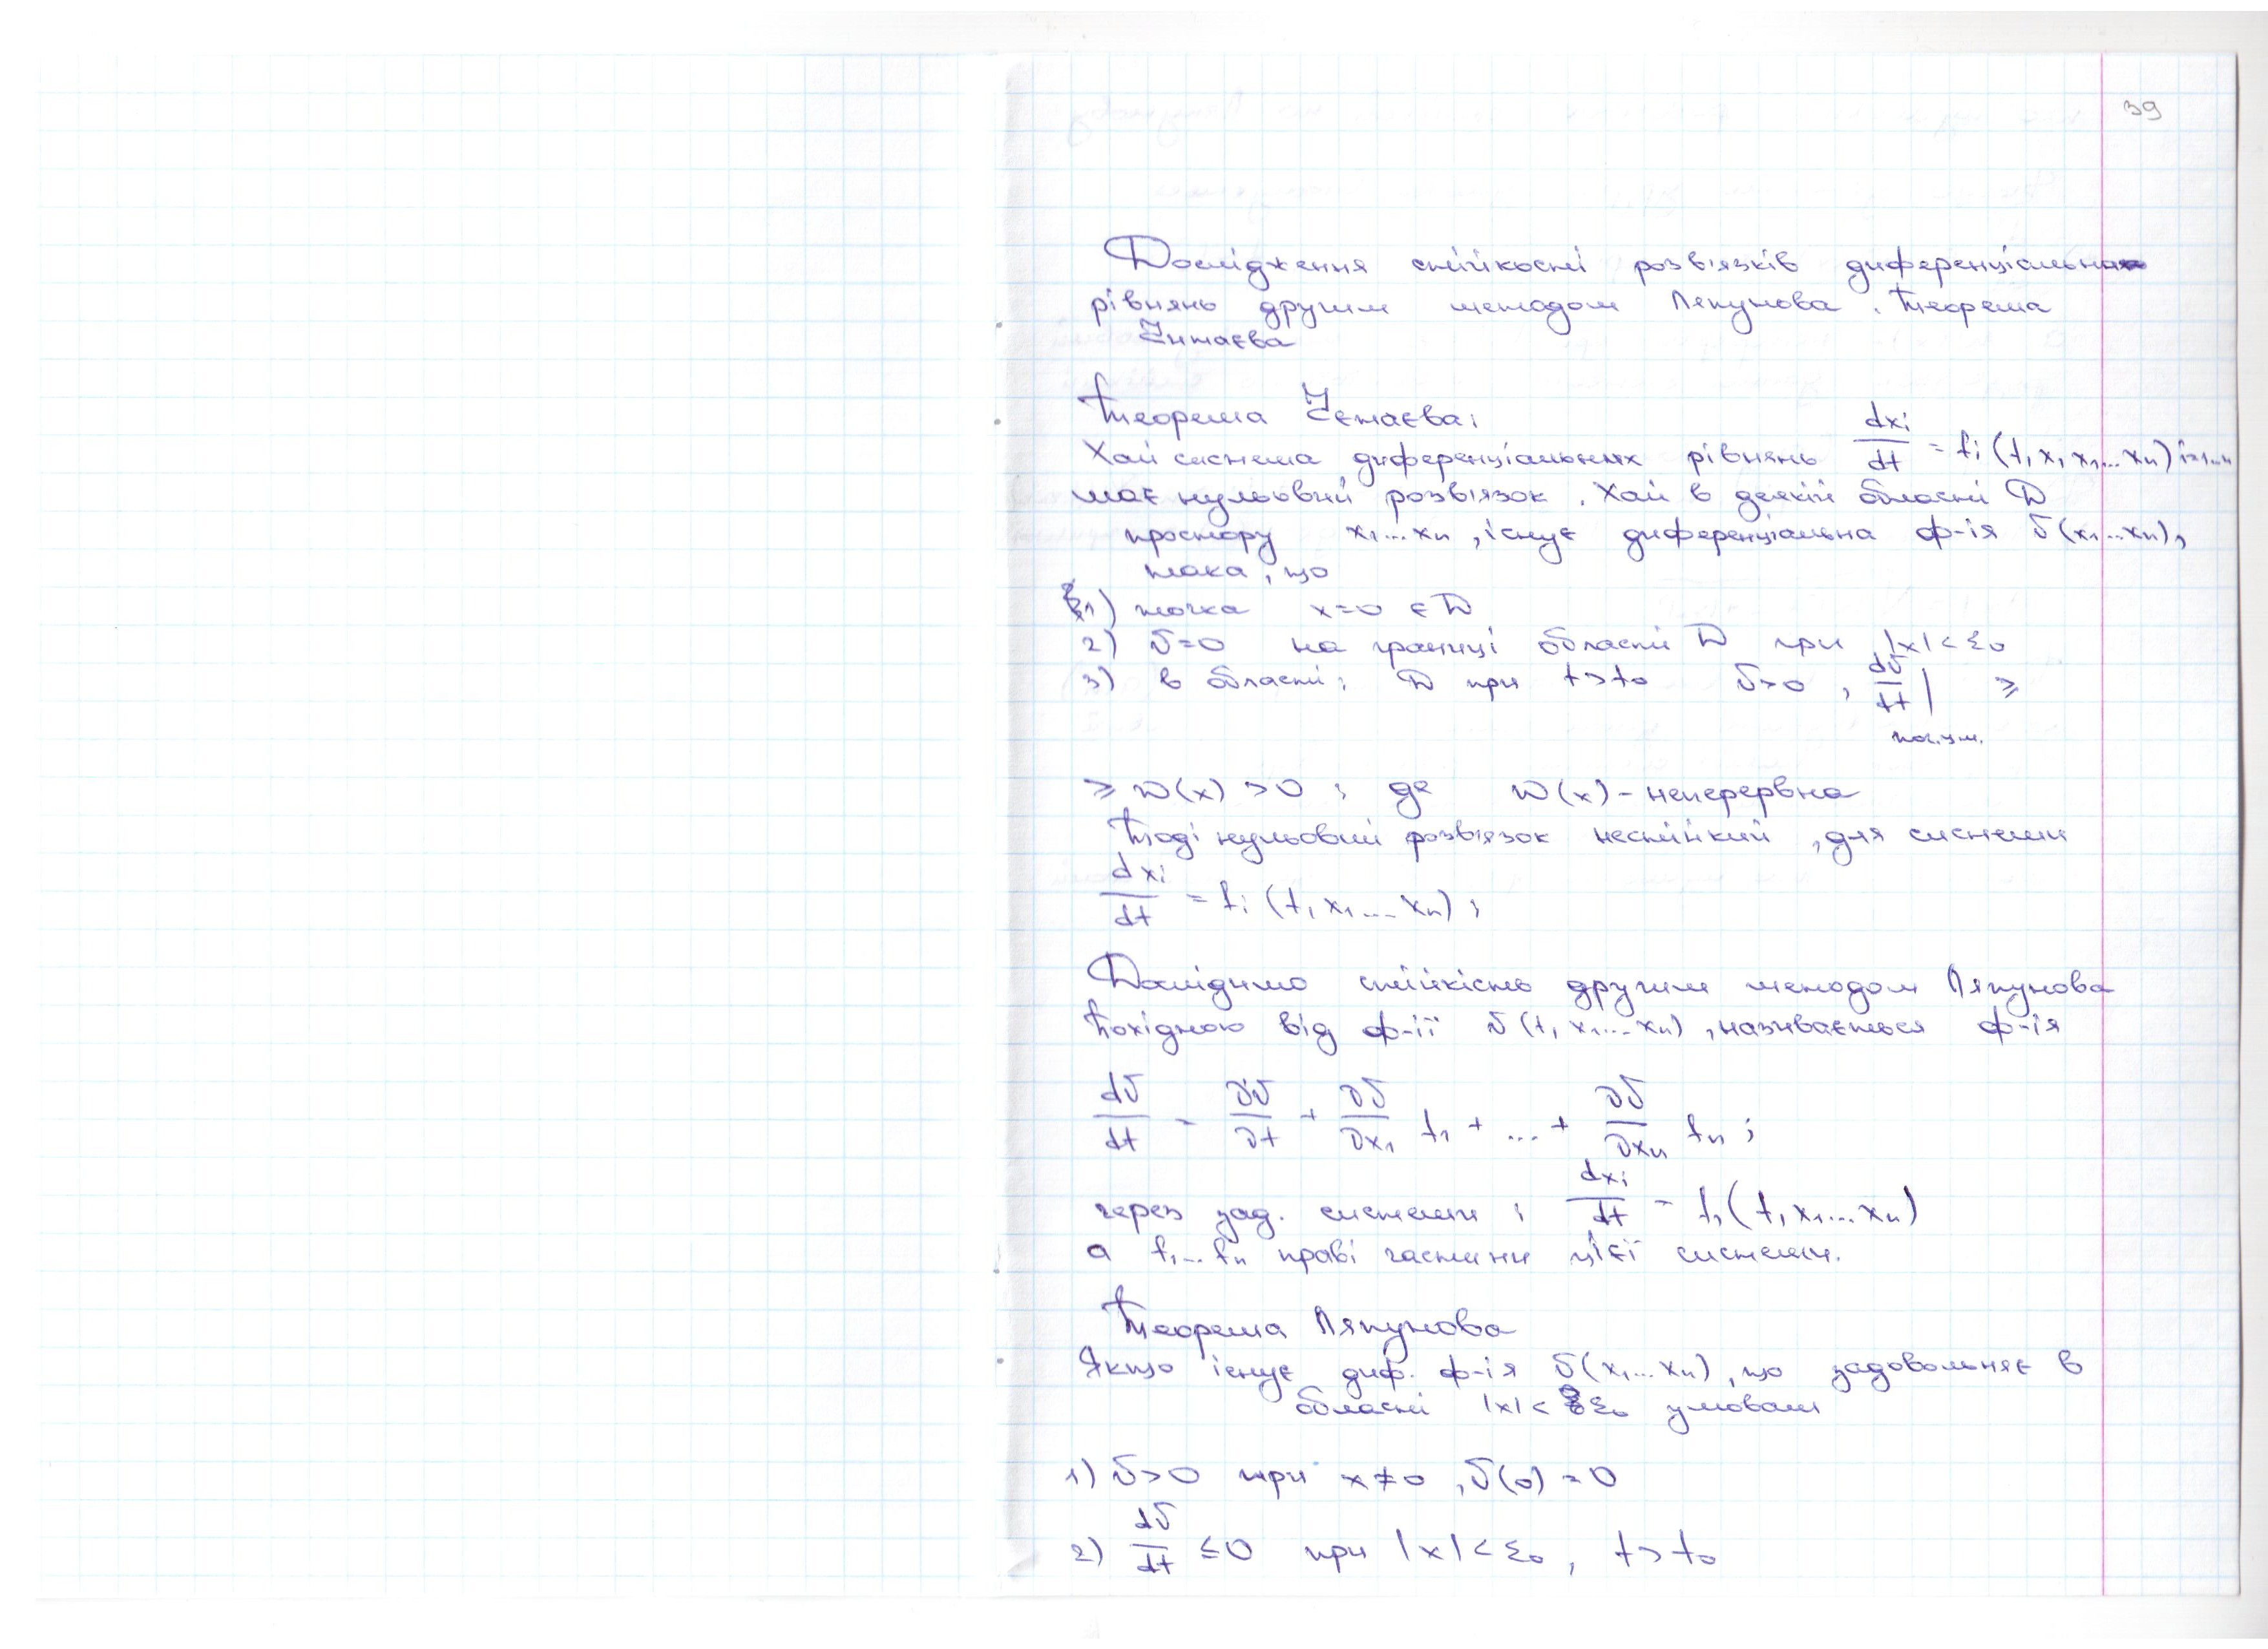 39
Дослідження стійкості розв'язків диференціальних
рівнянь другим методом Ляпунова. Теорема
Четаєва
Теорема Четаєва:
Хай система диференціальних рівнянь dxi/dt = fi (t, x, x1...xn) i=1..n
має нульовий розв'язок. Хай в деякій області D
простору x1...xn, існує диференціальна ф-ія v(x1...xn),
така, що
1) точка x=0 ∈ D
2) v=0 на границі області D при |x|<ε0
3) в області: D при t>t0 v>0, dv/dt| ≥
≥ w(x) >0; де w(x) - неперервна
Тоді нульовий розв'язок нестійкий, для системи
dxi/dt = fi (t, x1...xn);
Дослідимо стійкість другим методом Ляпунова
Похідною від ф-ії v(t, x1...xn), називається ф-ія
dv/dt = ∂v/∂t + ∂v/∂x1 f1 + ... + ∂v/∂xn fn;
через зад. системи; dxi/dt = f1(t, x1...xn)
а f1...fn праві частини цієї системи.
Теорема Ляпунова
Якщо існує диф. ф-ія v(x1...xn), що задовольняє в
області |x|<ε0 умовам
1) v>0 при x≠0, v(0)=0
2) dv/dt ≤0 при |x|<ε0, t>t0